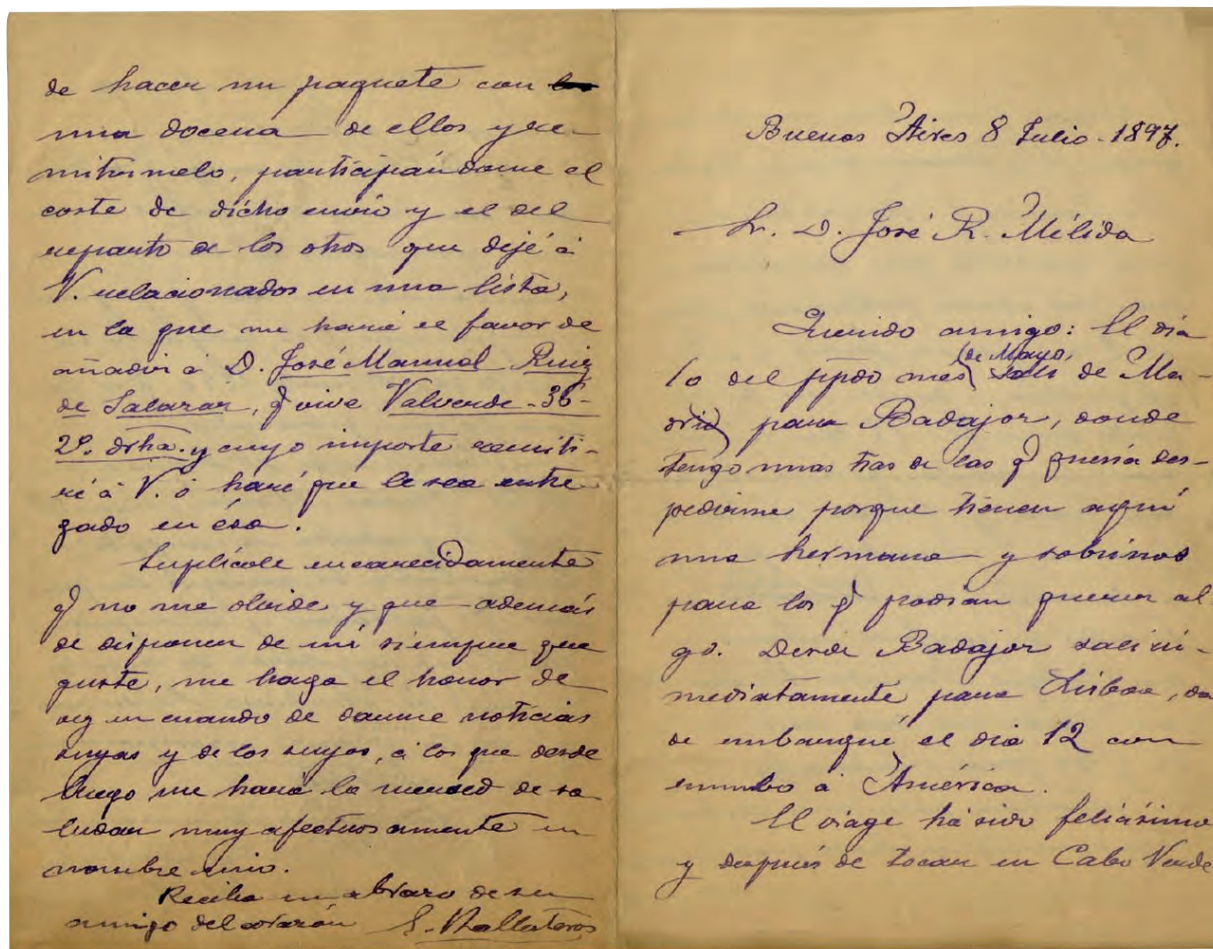 de hacer un paquete con
una docena de ellos y re-
mitírmelo, participándome el
coste de dicho envío y el del
reparto de los otros que dejé á
V. relacionados en una lista,
en la que me hará el favor de
añadir á D. José Manuel Ruiz
de Salazar, q vive Valverde-36-
2º. drha. y cuyo importe remiti-
ré á V. ó haré que le sea entre
gado en ésa.
Suplícole encarecidamente
q no me olvide y que además
de disponer de mí siempre que
guste, me haga el honor de
vez en cuando de darme noticias
suyas y de los suyos, á los que desde
luego me hará la merced de sa
ludar muy afectuosamente en
nombre mio.
Reciba un abrazo de su
amigo del corazón
Buenos Aires 8 Julio-1897.
Sr. D. José R. Mélida
Querido amigo: El día
10 del ppdo mes (de Mayo, salí de Ma-
drid) para Badajoz, donde
tengo unas tias de las q quería des-
pedirme porque tienen aquí
una hermana y sobrinos
para los q podian querer al-
go. Desde Badajoz salí in-
mediatamente para Lisboa, don
de embarqué el dia 12 con
rumbo á América.
El viage há sido felicísimo
y después de tocar en Cabo Verde